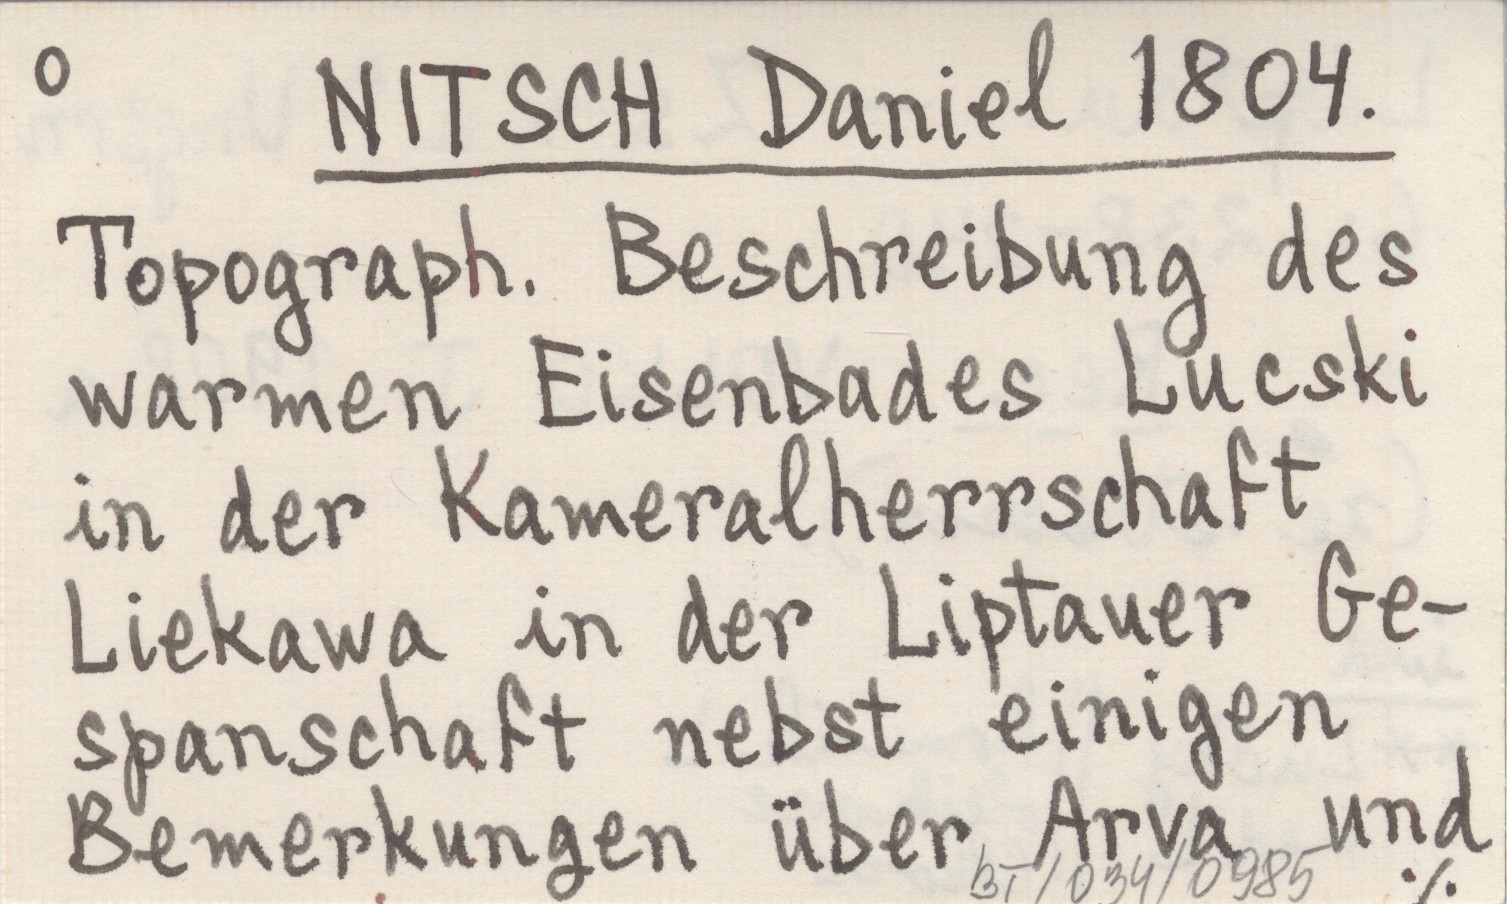 o
NITSCH Daniel 1804.
Topograph. Beschreibung des
warmen Eisenbades Lucski
in der Kameralherrschaft
Liekawa in der Liptauer Ge-
spanschaft nebst einigen
Bemerkungen über Arva und
BT/034/0985 ./.